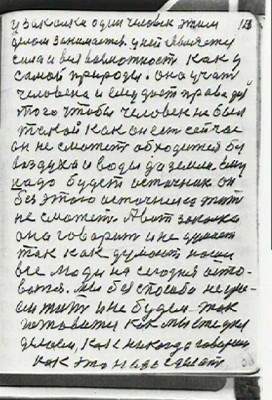 у закалка один человек этим 113
делом занимается. у ней является
сила и вся возможность как у
самой природы. она учит
человека и ему дает права для
того чтобы человек не был
такой как он есть сейчас
он не сможет обходится без
воздуха и воды да земли ему
надо будет источник он
без этого источника жить
не сможет. А вот закалка
она говорит и не думает
так как думают наши
все люди на сегодня
мы без способа не
жить и не будем так
как мы сегодня
делаем, как никогда говорим
как это надо сделать